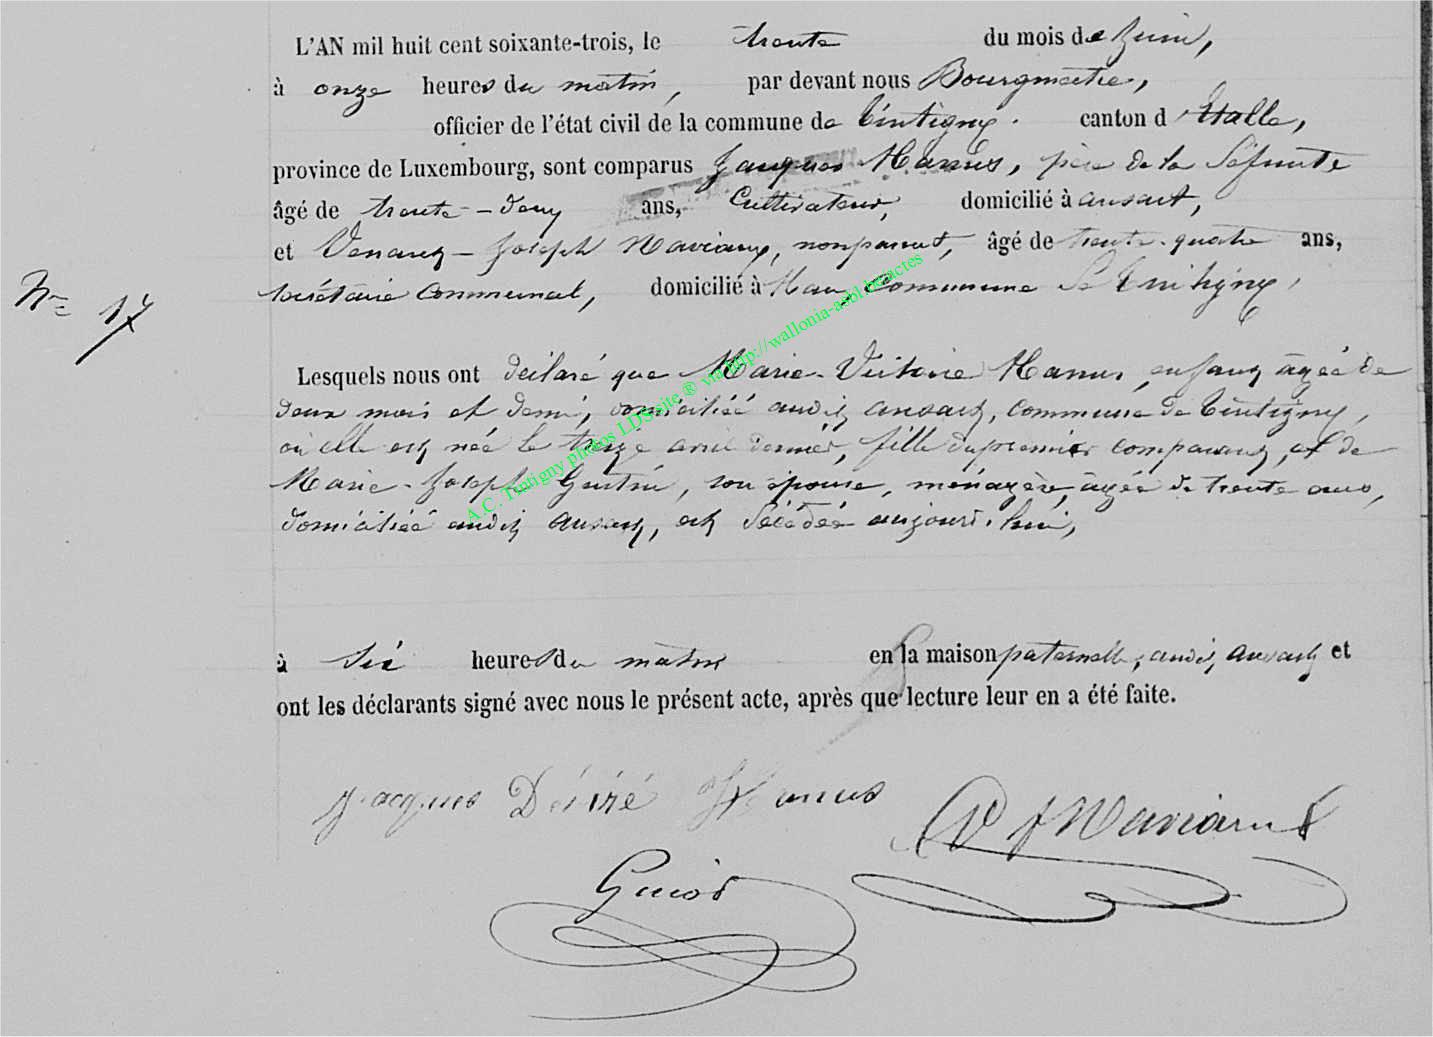 L'AN mil huit cent soixante-trois, le trente du mois de Juin,
à onze heures du matin, par devant nous Bourgmestre,
officier de l'état civil de la commune de Tintigny. canton d'Etalle,
province de Luxembourg, sont comparus Jacques Hanus, père de la défunte
âgé de trente-deux ans, Cultivateur, domicilié à ansart,
et Venant-Joseph Maviaux, nonparent, âgé de trente-quatre ans,
N° 17
secrétaire communal, domicilié à Han, Commune de Tintigny,
Lesquels nous ont déclaré que Marie-Victoire Hanus, enfant âgée de
deux mois et demi, domiciliée audit ansart, commune de Tintigny,
où elle est née le treize avril dernier, fille du premier comparant, et de
Marie-Joseph Gentin, son épouse, ménagère, âgée de trente ans,
domiciliée audit ansart, est décédée aujourd'hui,
à six heures du matin en la maison paternelle, audit ansart et
ont les déclarants signé avec nous le présent acte, après que lecture leur en a été faite.
Jacques Désiré Hanus
V J Maviaux
Guiot
A.C. Tintigny photos LDS site ® via http://wallonia-asbl.be/actes